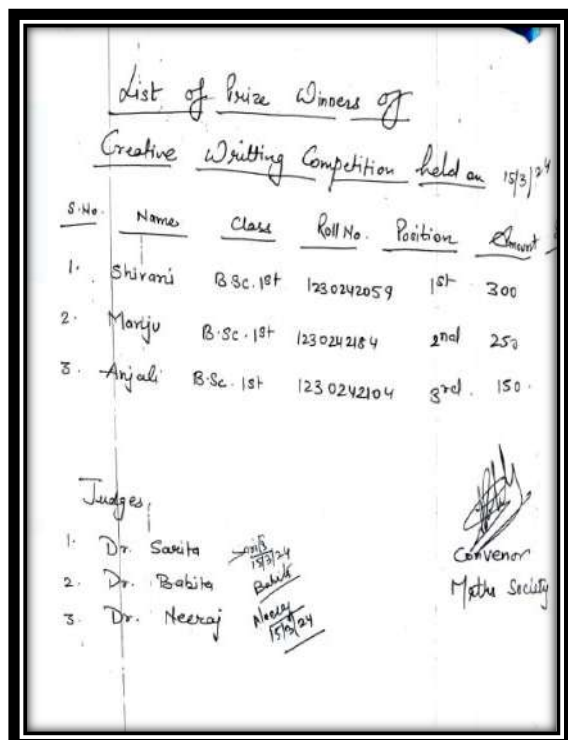 List of Prize Winners of
Creative Writting Competition held on 15/3/24
S.No. Name Class Roll No. Position Amount
1. Shivani B.Sc. 1st 1230242059 1st 300
2. Manju B.Sc. 1st 1230242184 2nd 250
3. Anjali B.Sc. 1st 1230242104 3rd. 150.
Judges,
1. Dr. Sarita 15/3/24
2. Dr. Babita Babita
3. Dr. Neeraj Neeraj 15/3/24
Convenor
Maths Society